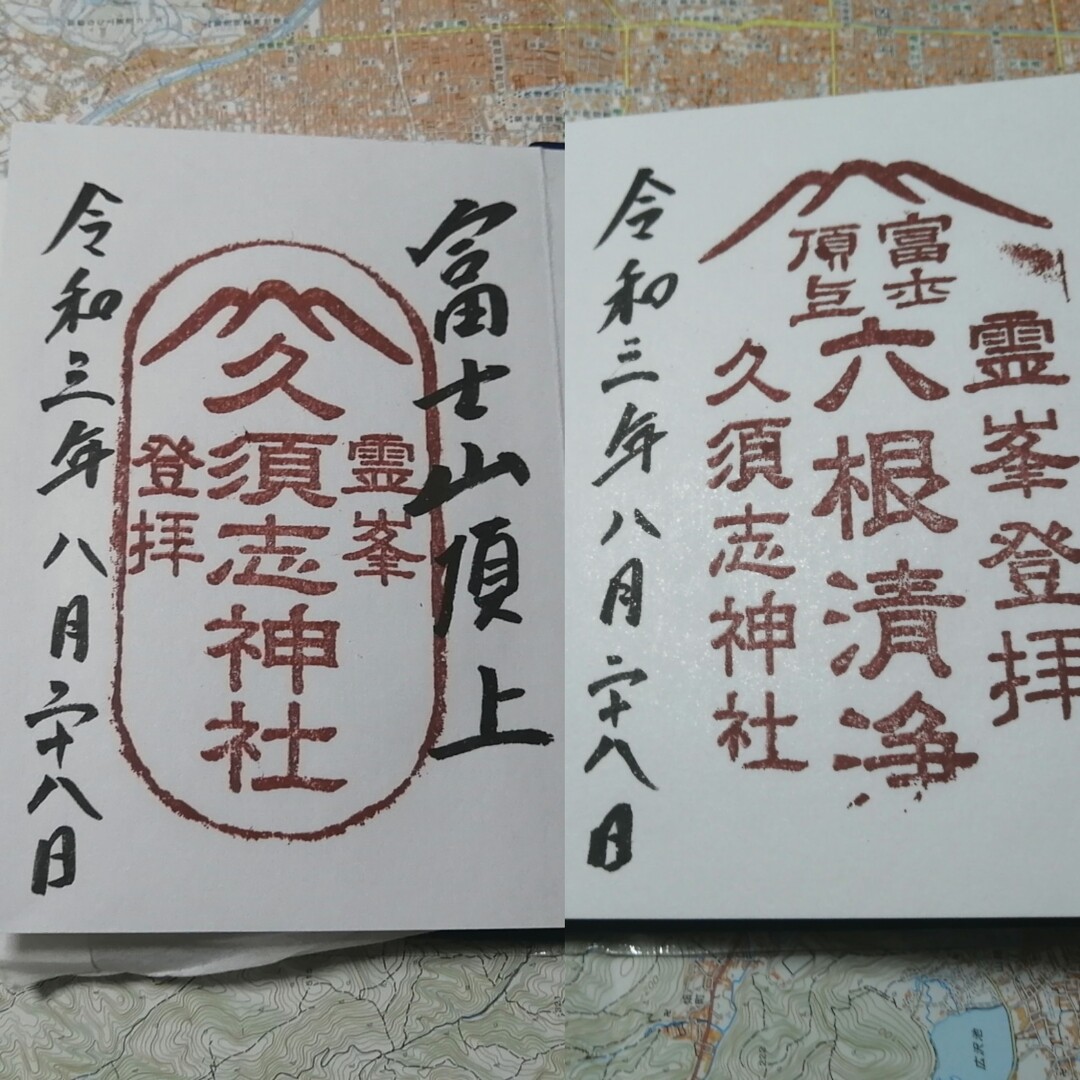 富士山頂上
霊峯
久須志神社
登拝
令和三年八月二十八日
霊峯登拝
富士
頂上
六根清浄
久須志神社
令和三年八月二十八日
広沢池